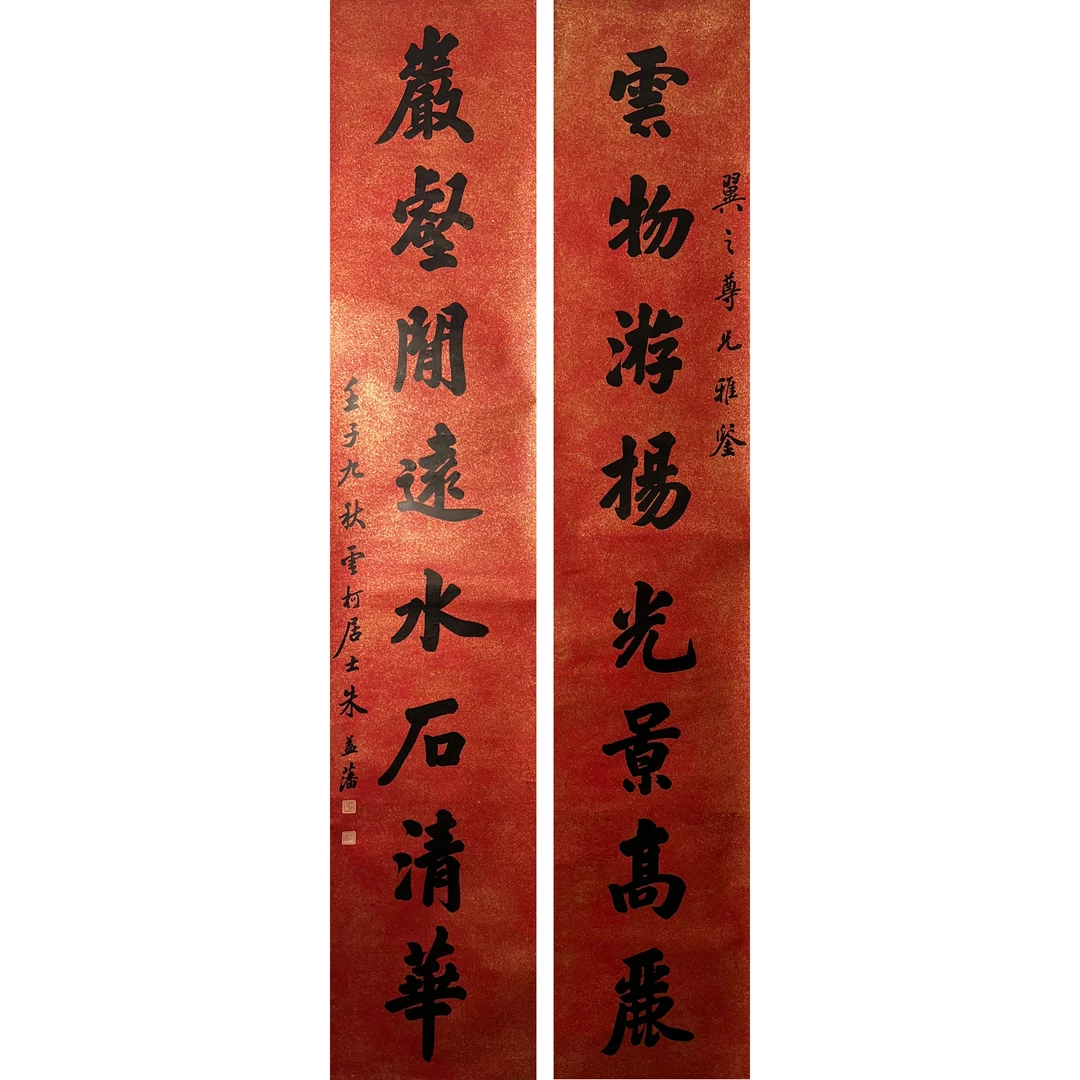 翼之尊兄雅鉴
雲物游揚光景高麗
巖壑閒遠水石清華
壬子九秋雲柯居士朱益藩